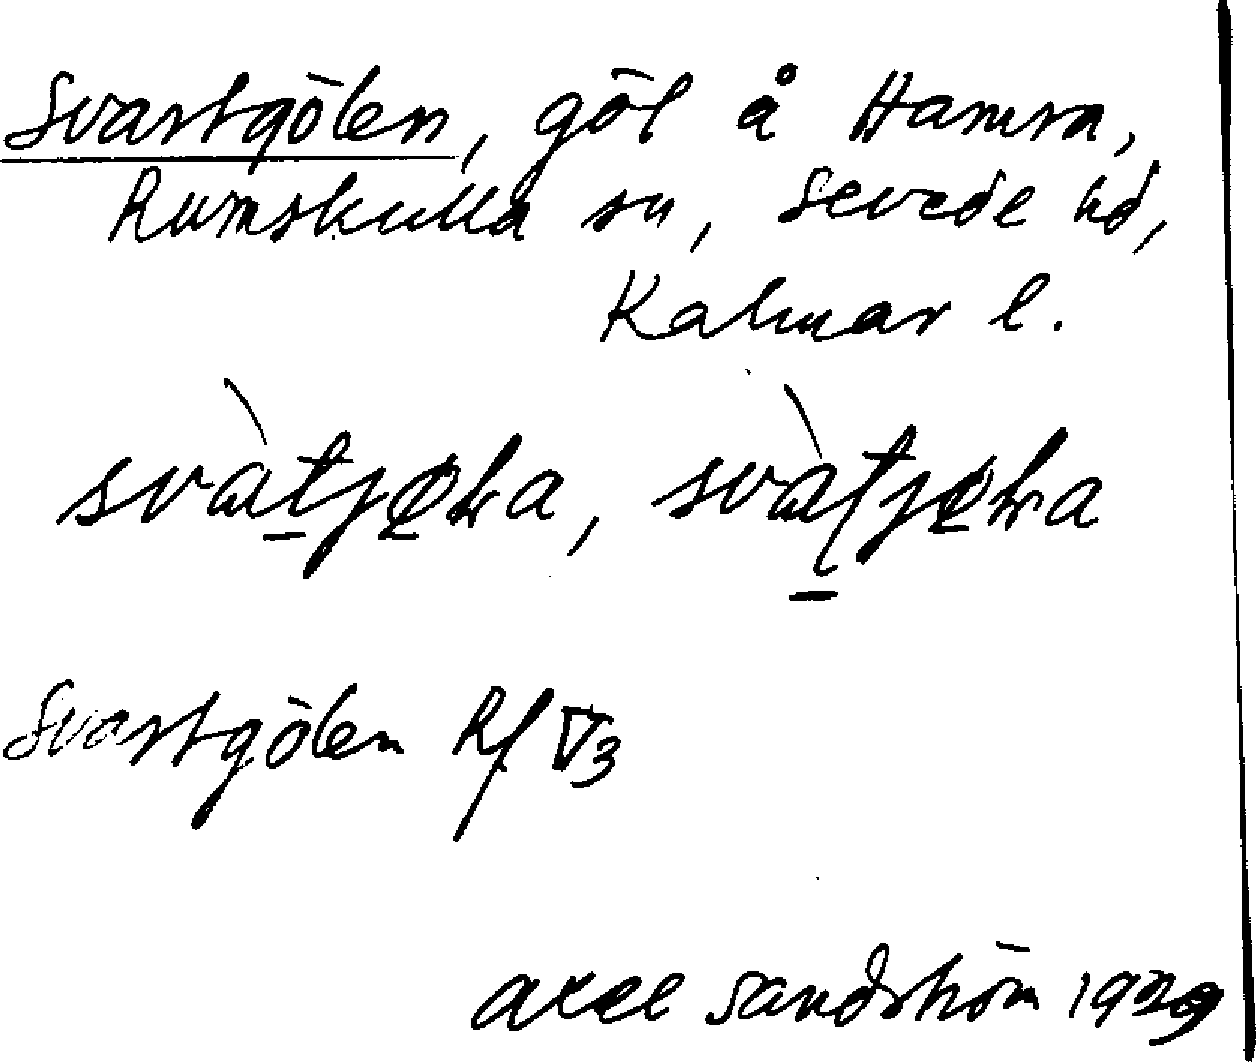 Svartgölen, göl å Hamra,
Rumskulla sn, Sevede hd,
Kalmar l.
Svartgölen Rf V3
Axel Sandström 1929